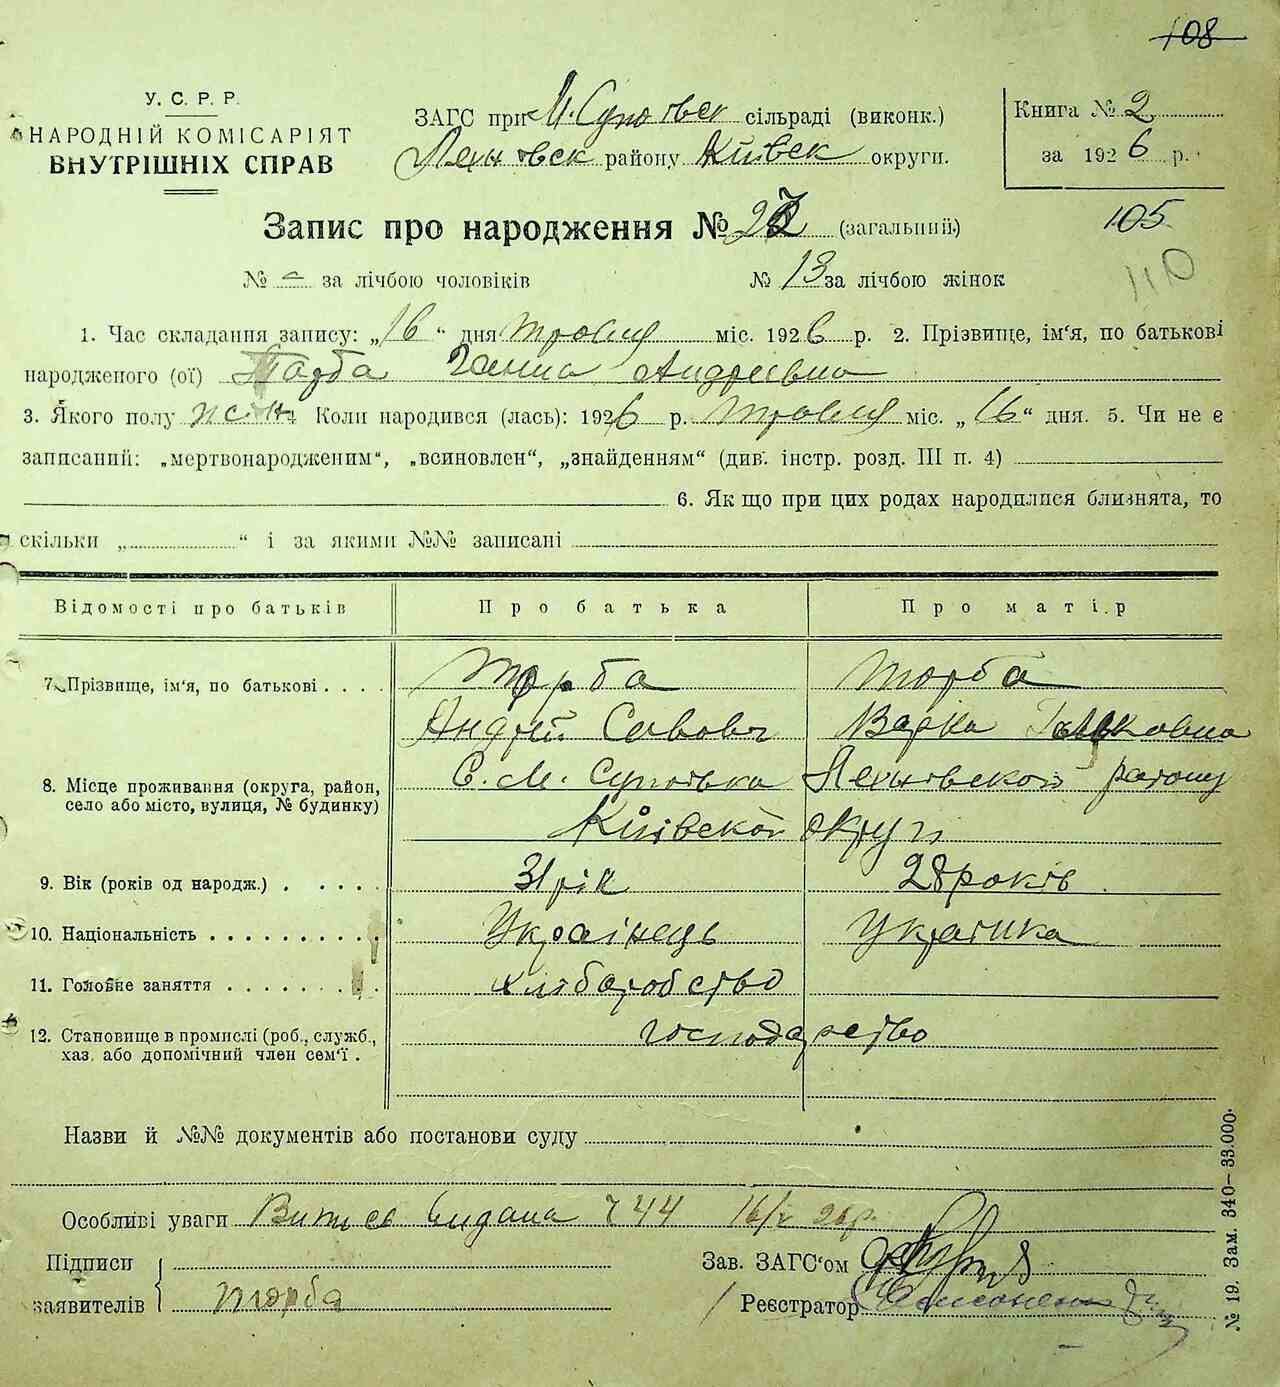 108
У. С. Р. Р.
НАРОДНІЙ КОМІСАРІЯТ
ВНУТРІШНІХ СПРАВ
ЗАГС при М. Супоївск сільраді (виконк.)
району Київск округи.
Книга № 2
за 1926 р.
Запис про народження № (загальний)
105
110
№ – за лічбою чоловіків № 13 за лічбою жінок
1. Час складання запису: „16“ дня травня міс. 1926 р. 2. Прізвище, ім'я, по батькові
народженого (ої) Торба Ганна Андріївна
3. Якого полу жін. Коли народився (лась): 1926 р. травня міс. „16“ дня. 5. Чи не є
записаний: „мертвонародженим“, „всиновлен“, „знайденням“ (див. інстр. розд. III п. 4)
6. Як що при цих родах народилися близнята, то
скільки „ “ і за якими №№ записані
Відомості про батьків Про батька Про матір
7. Прізвище, ім'я, по батькові . . . . Торба Торба
Андрій Савович Варка
8. Місце проживання (округа, район, село або місто, вулиця, № будинку) С. М. Супоївка району
Київской округи
9. Вік (років од народж.) . . . . . 31 рік 28 років
10. Національність . . . . . . . . . . Українець Українка
11. Головне заняття . . . . . . . . . хліборобство
12. Становище в промислі (роб., служб., хаз. або допомічний член сем'ї . господарство
Назви й №№ документів або постанови суду
Особливі уваги Випись видана 744 16/V 26 р.
Підписи
заявителів Торба
Зав. ЗАГС'ом
Реєстратор
№ 19. Зам. 340–33.000.